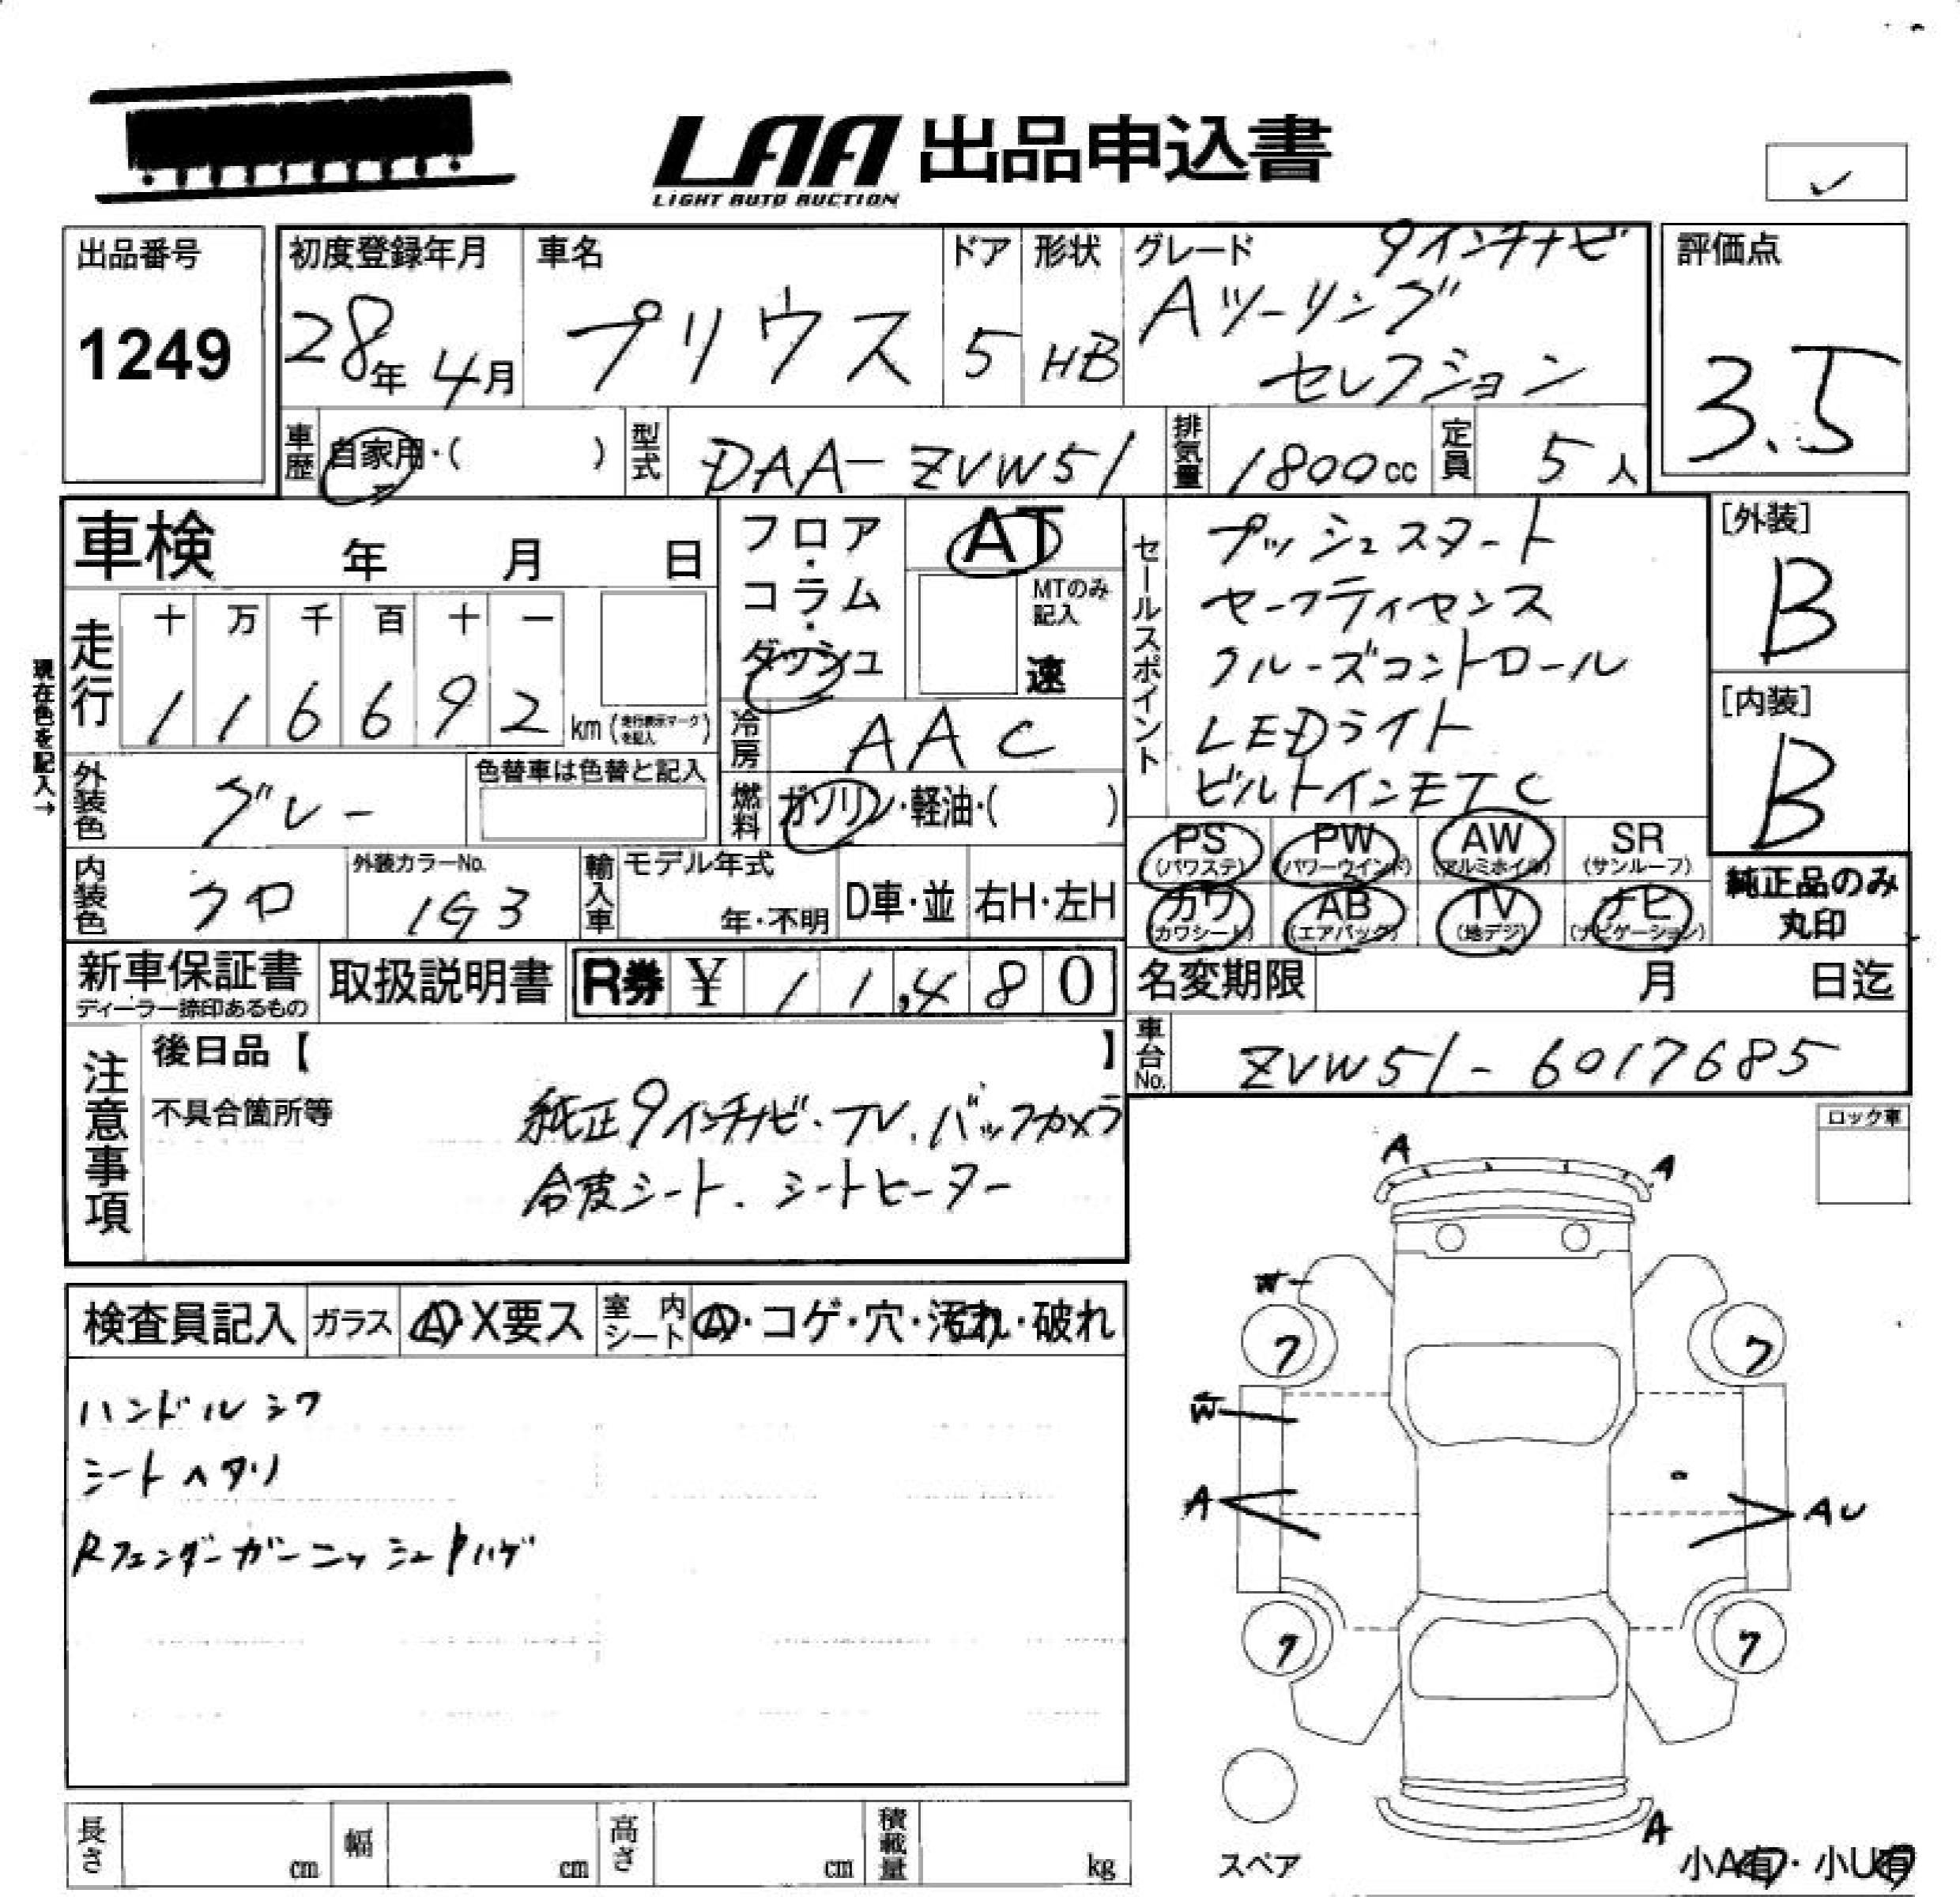 LAA 出品申込書
LIGHT AUTO AUCTION
✓
出品番号
1249
初度登録年月
28年 4月
車名
プリウス
ドア
5
形状
HB
グレード
9インチナビ
Aツーリング
セレクション
評価点
3.5
車歴 自家用・( )
型式 DAA-ZVW51
排気量 1800cc
定員 5人
車検 年 月 日
フロア・コラム・ダッシュ
AT
MTのみ記入
速
走行
十 万 千 百 十 一
1 1 6 6 9 2 km (走行表示マークを記入)
現在色を記入→
冷房 AAC
外装色 グレー
色替車は色替と記入
燃料 ガソリン・軽油・( )
内装色 クロ
外装カラーNo.
1G3
輸入車
モデル年式
年・不明
D車・並
右H・左H
セールスポイント
プッシュスタート
セーフティセンス
クルーズコントロール
LEDライト
ビルトインETC
[外装]
B
[内装]
B
PS (パワステ)
PW (パワーウインド)
AW (アルミホイル)
SR (サンルーフ)
カワ (カワシート)
AB (エアバック)
TV (地デジ)
ナビ (ナビゲーション)
純正品のみ
丸印
新車保証書
ディーラー捺印あるもの
取扱説明書
R券 ¥ 11,480
名変期限 月 日迄
車台No. ZVW51-6017685
注意事項
後日品【 】
不具合箇所等
純正9インチナビ・TV.バックカメラ
合皮シート.シートヒーター
ロック車
検査員記入
ガラス
A・X要ス
室内シート
A・コゲ・穴・汚れ・破れ
ハンドルシワ
シートヘタリ
RフェンダーガーニッシュトハゲA A
W
フ フ
W
A
AU
フ フ
A
スペア
小A有・小U有
長さ cm
幅 cm
高さ cm
積載量 kg